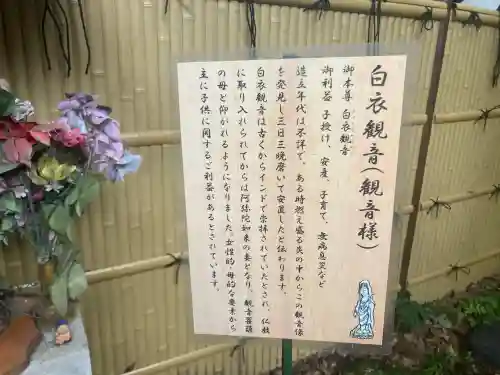 白衣観音(観音様)
御本尊 白衣観音
御利益 子授け、安産、子育て、無病息災など
造立年代は不詳ですが、ある時燃え盛る炎の中からこの観音像
を発見し三日三晩磨いて安置したと伝わります。
白衣観音は古くからインドで崇拝されていたとされ、仏教
に取り入れられてからは阿弥陀如来の妻となり、観音菩薩
の母と仰がれるようになりました。女性的・母的な要素から
主に子供に関するご利益があるとされています。